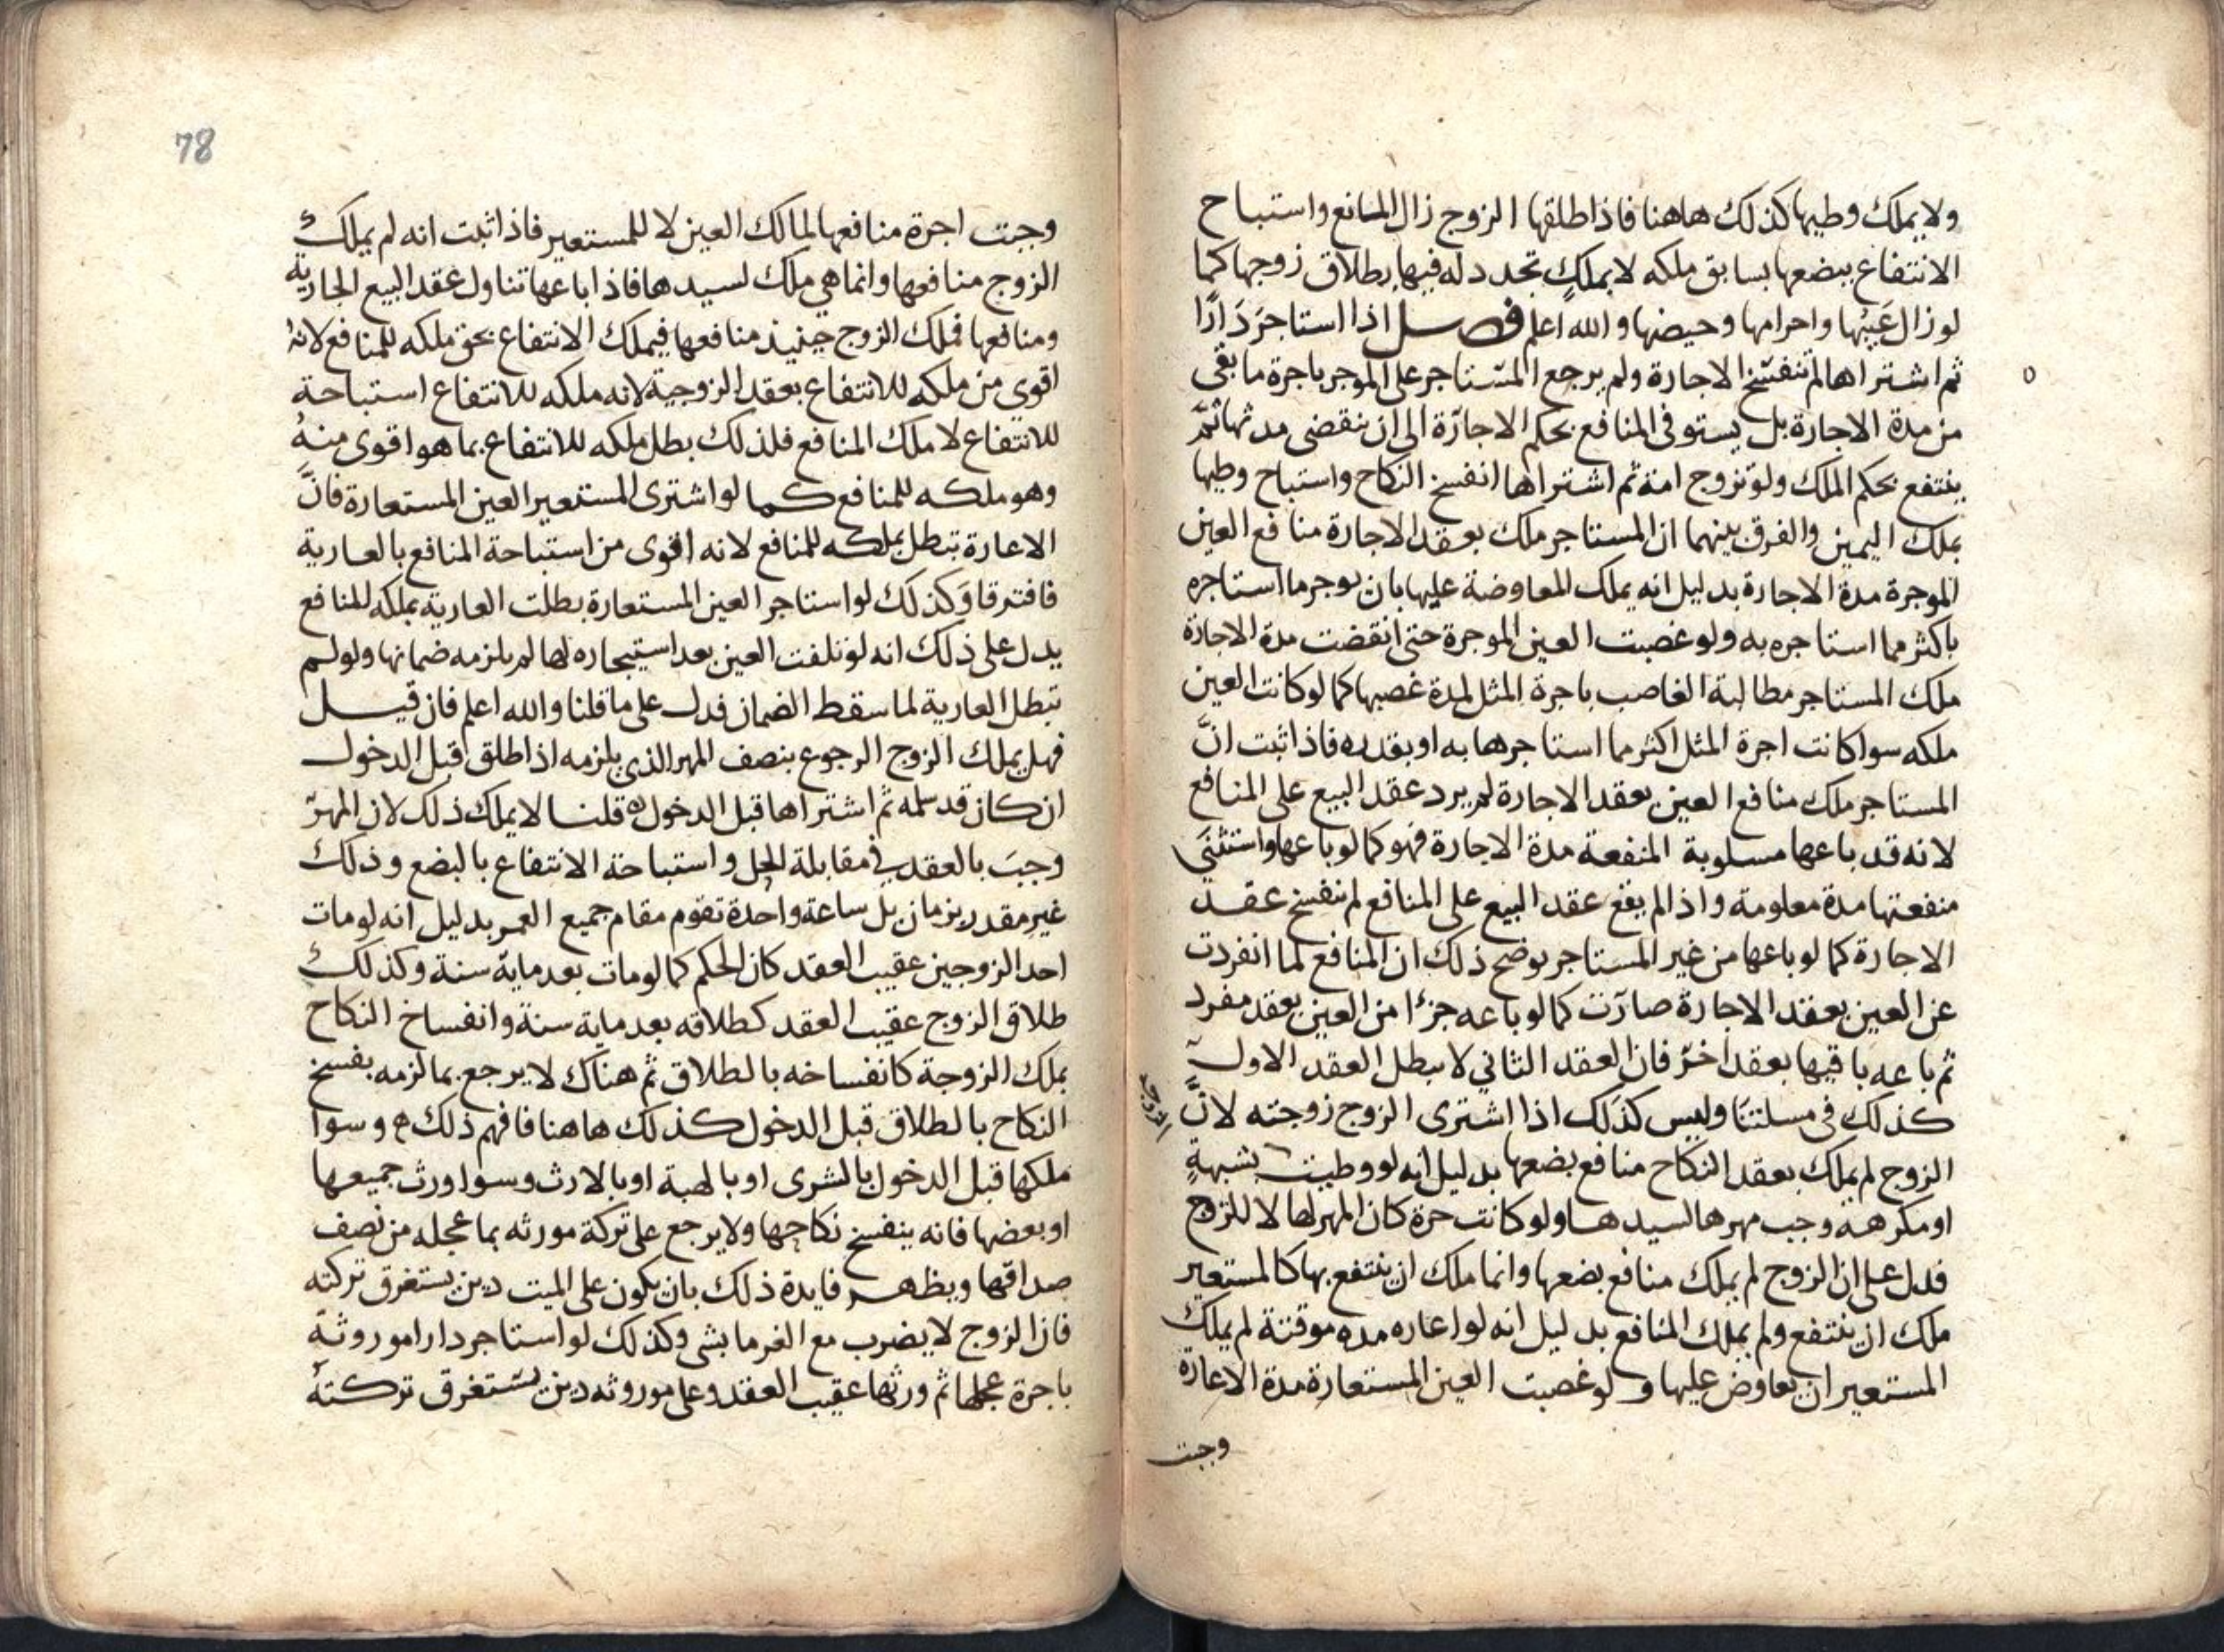 ولا يملك وطيها كذلك هاهنا فاذا طلقها الزوج زال المانع واستباح
الانتفاع ببضعها بسابق ملكه لا بملكٍ تجدد له فيها بطلاق زوجها كما
لو زال عَيبُها واحرامها وحيضها والله اعلم فصل اذا استاجرَ دَارًا
ثم اشتراها لم تنفسّخ الاجارة ولم يرجع المسّتاجر على الموجر باجرة ما بقى
من مدة الاجارة بل يستوفى المنافع بحكم الاجارة الى ان تنقضى مدتها ثمّ
ينتفع بحكم الملك ولو تزوج امة ثم اشتراها انفسخ النكاح واستباح وطيها
بملك اليمين والفرق بينهما ان المستاجر ملك بعقد الاجارة منافع العين
الموجرة مدة الاجارة بدليل انه يملك المعاوضة عليها بان يوجر ما استاجره
باكثر مما استاجره به ولو غصبت العين الموجرة حتى انقضت مدة الاجارة
ملك المستاجر مطالبة الغاصب باجرة المثل لمدة غصبها كما لو كانت العين
ملكه سوا كانت اجرة المثل اكثر مما استاجرها به او بقدره فاذا ثبت انّ
المستاجر ملك منافع العين بعقد الاجارة لم يرد عقد البيع على المنافع
لانه قد باعها مسلوبة المنفعة مدة الاجارة فهو كما لو باعها واستثنَى
منفعتها مدة معلومة واذا لم يقع عقد البيع على المنافع لم تنفسخ عقد
الاجارة كما لو باعها من غير المستاجر يوضح ذلك ان المنافع لما انفردت
عن العين بعقد الاجارة صارت كما لو باعه جزءا من العين بعقد مفرد
ثم باعه باقيها بعقد اخر فان العقد الثاني لا يبطل العقد الاول
كذلك فى مسلتنا وليس كذلك اذا اشترى الزوج زوجته لانّ
الزوج
الزوج لم يملك بعقد النكاح منافع بضعها بدليل انه لو وطيت بشبهةٍ
او مكرهة وجب مهرها لسيدها ولو كانت حرة كان المهر لها لا للزوج
فدل على ان الزوج لم يملك منافع بضعها وانما ملك ان ينتفع بها كالمستعير
ملك ان ينتفع ولم يملك المنافع بدليل انه لو اعاره مده موقتة لم يملك
المستعير ان يعاوض عليها ولو غصبت العين المستعارة مدة الاعارة
وجبت
78
وجبت اجرة منافعها لمالك العين لا للمستعير فاذا ثبت انه لم يملك
الزوج منافعها وانما هي ملك لسيدها فاذا باعها تناول عقد البيع الجارية
ومنافعها فملك الزوج حينيذ منافعها فيملك الانتفاع بحق ملكه للمنافع لانهُ
اقوى من ملكه للانتفاع بعقد الزوجية لانه ملكه للانتفاع استباحة
للانتفاع لا ملك المنافع فلذلك بطل ملكه للانتفاع بما هو اقوى منهُ
وهو ملكه للمنافع كما لو اشترى المستعير العين المستعارة فانّ
الاعارة تبطل بملكه للمنافع لانه اقوى من استباحة المنافع بالعارية
فافترقا وَكذلك لو استاجر العين المستعارة بطلت العارية بملكه للمنافع
يدل على ذلك انه لو تلفت العين بعد استيجاره لها لم يلزمه ضمانها ولو لم
تبطل العارية لما سقط الضمان فدل على ما قلنا والله اعلم فان قيل
فهل يملك الزوج الرجوع بنصف المهر الذي يلزمه اذا طلق قبل الدخول
ان كان قد سلمه ثم اشتراها قبل الدخول ه قلنا لا يملك ذلك لان المهرّ
وجبَ بالعقد في مقابلة الحل واستباحة الانتفاع بالبضع وذلك
غير مقدر بزمان بل ساعة واحدة تقوم مقام جميع العمر بدليل انه لو مات
احد الزوجين عقيب العقد كان الحكم كما لو مات بعد ماية سنة وكذلك
طلاق الزوج عقيب العقد كطلاقه بعد ماية سنة وانفساخ النكاح
بملك الزوجة كانفساخه بالطلاق ثم هناك لا يرجع بما لزمه بفسخ
النكاح بالطلاق قبل الدخول كذلك هاهنا فافهم ذلك ه وسوا
ملكها قبل الدخول بالشرى او بالهبة او بالارث وسوا ورث جميعها
او بعضها فانه ينفسخ نكاحها ولا يرجع على تركة مورثه بما عجله من نصف
صداقها ويظهر فايدة ذلك بان يكون على الميت دين يستغرق تركته
فان الزوج لا يضرب مع الغرما بشى وكذلك لو استاجر دارا موروثة
باجرة عجلها ثم ورثها عقيب العقد وعلى موروثه دين يستغرق تركتهُ